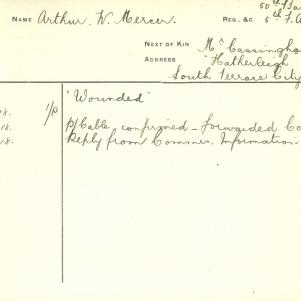 50th Ba
NAME Arthur W. Mercer. REG., &C. 5th F. A
NEXT OF KIN Mrs Cassingha
ADDRESS "Hatherleigh
South Terrace City
18. 1/p "Wounded"
18. p/Cable confirmed - forwarded Co
18. Reply from Commrs. Information